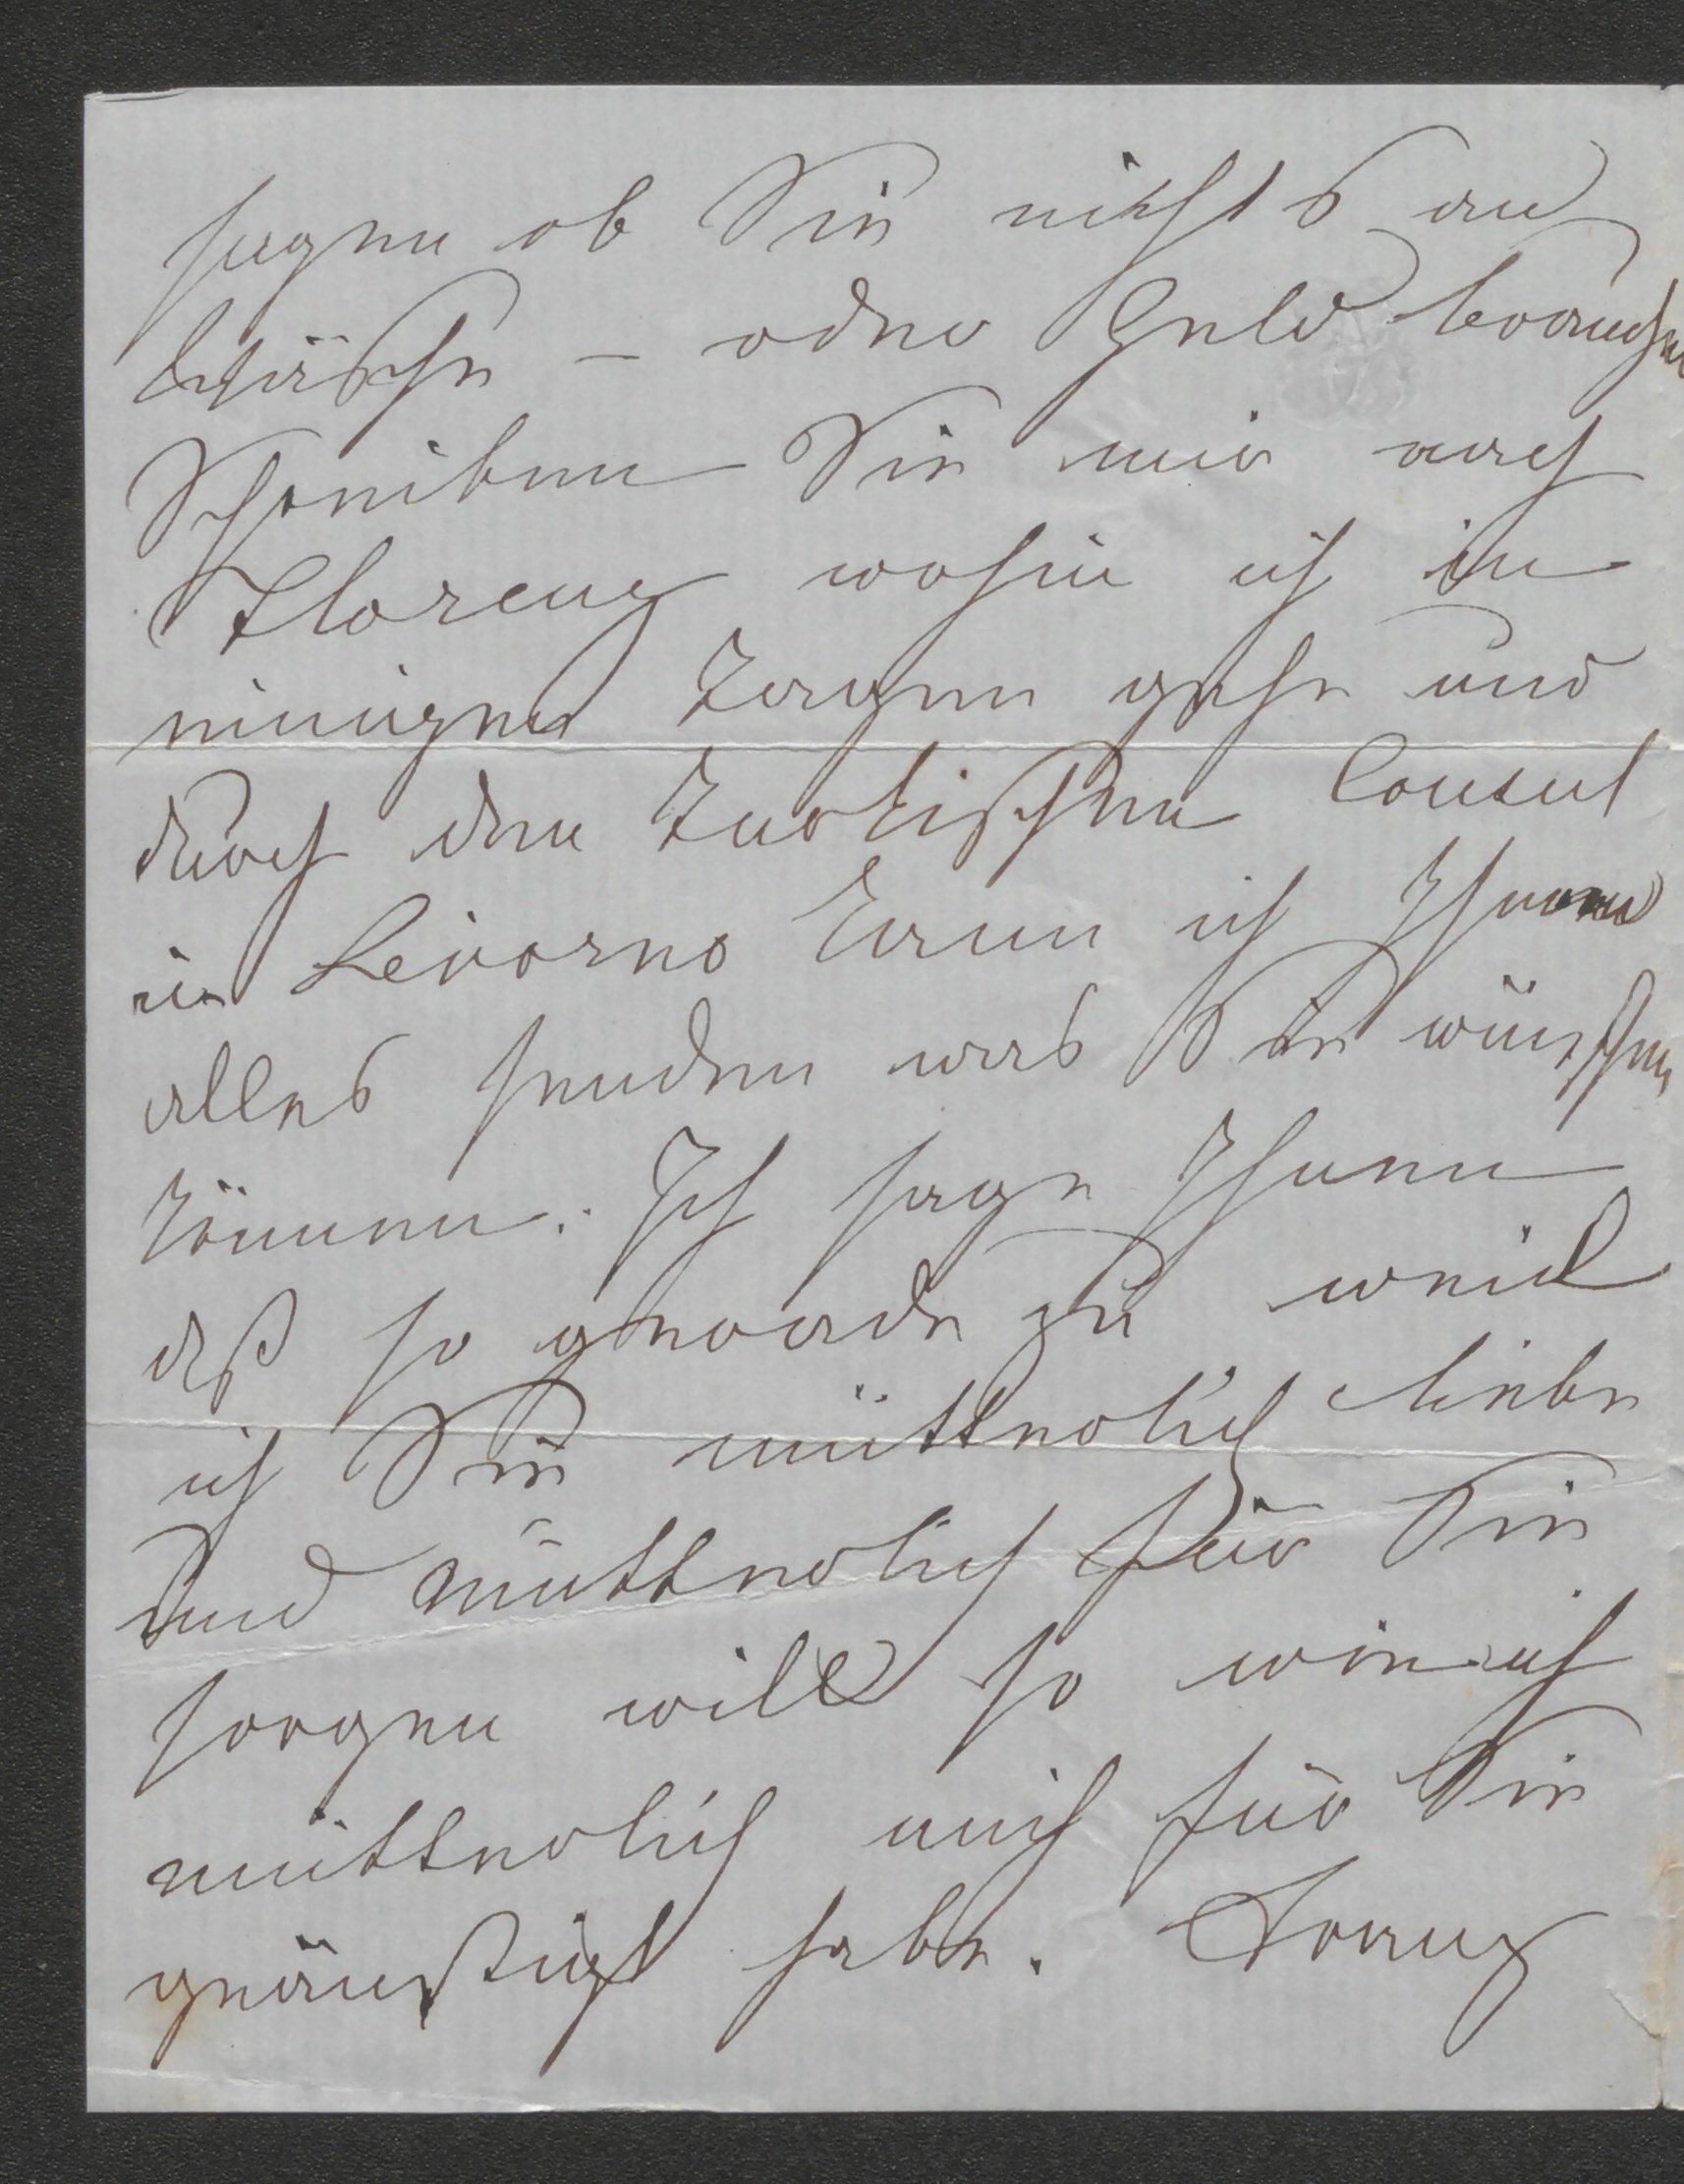 sagen ob Sie nichts an
Wäsche – oder Geld brauchen
Schreiben Sie mir nach
Florenz wohin ich in
einigen Tagen gehe und
durch den Turkischen Consul
in Livorno kann ich Ihnen
alles senden was Sie wünschen
können. Ich sage Ihnen
dß so gerade zu weil
ich Sie mütterlich liebe
und mütterlich für Sie
sorgen will so wie ich
mütterlich mich für Sie
geängstigt habe. Franz